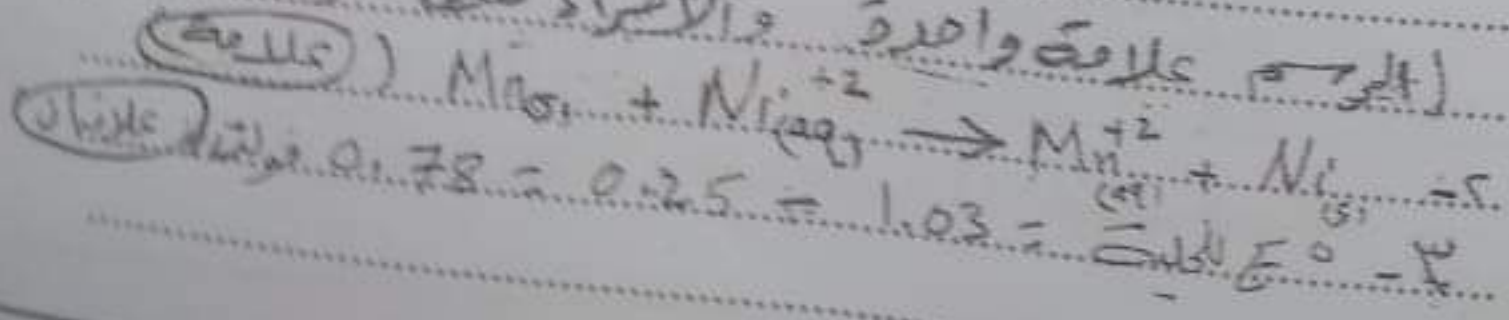 [الرسم علامة واحدة والأجزاء
٢- Mn(s) + Ni+2(aq) → Mn+2(aq) + Ni(s) (علامة)
٣- E° للخلية = 1.03 - 0.25 = 0.78 فولت علامتان